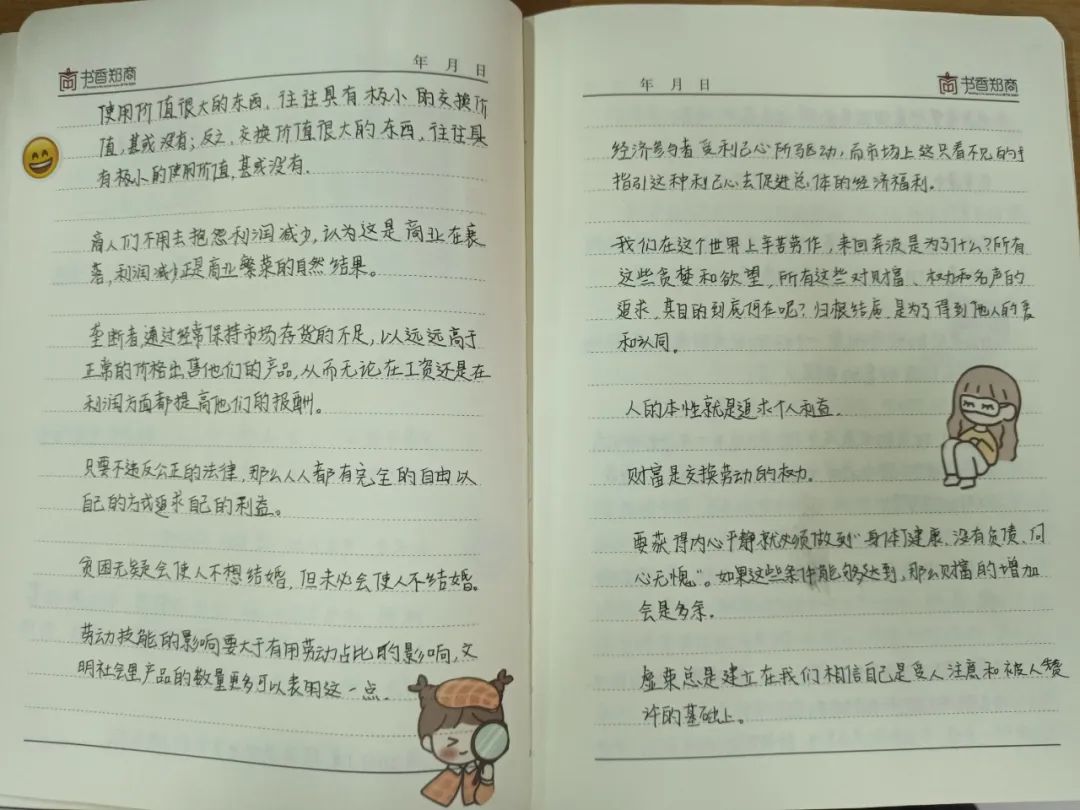 书香郑商
年 月 日
使用价值很大的东西，往往具有极小的交换价
值，甚或没有；反之，交换价值很大的东西，往往具
有极小的使用价值，甚或没有.
商人们不用去抱怨利润减少，认为这是商业在衰
落，利润减少正是商业繁荣的自然结果。
垄断者，通过经常保持市场存货的不足，以远远高于
正常的价格出售他们的产品，从而无论在工资还是在
利润方面都提高他们的报酬。
只要不违反公正的法律，那么人人都有完全的自由以
自己的方式追求自己的利益。
贫困无疑会使人不想结婚，但未必会使人不结婚。
劳动技能的影响要大于有用劳动占比的影响，文
明社会里产品的数量更多可以表明这一点.
年 月 日
书香郑商
经济参与者受利己心所驱动，而市场上这只看不见的手
指引这种利己心去促进总体的经济福利。
我们在这个世界上辛苦劳作，来回奔波是为了什么？所有
这些贪婪和欲望，所有这些对财富、权力和名声的
追求，其目的到底何在呢？归根结底，是为了得到他人的爱
和认同。
人的本性就是追求个人利益.
财富是交换劳动的权力。
要获得内心平静就必须做到“身体健康、没有负债、问
心无愧”。如果这些条件能够达到，那么财富的增加
会是多余.
虚荣总是建立在我们相信自己是受人注意和被人赞
许的基础上。